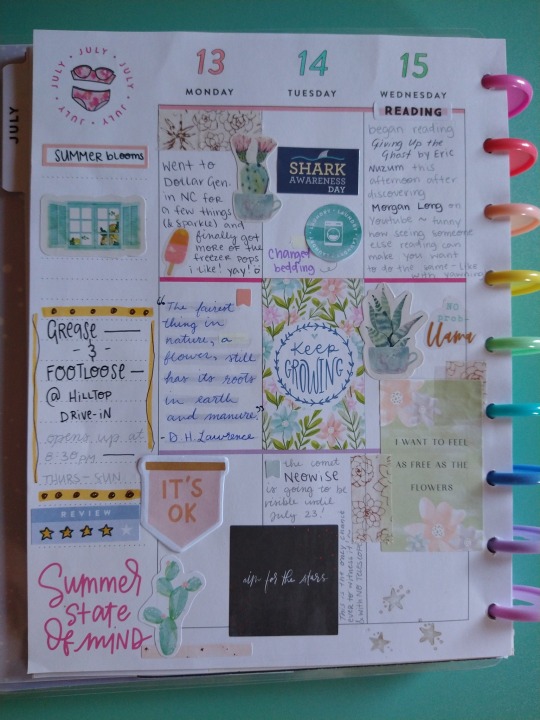 JULY
JULY • JULY • JULY • JULY • JULY • JULY
SUMMER blooms
GREASE
- & -
FOOTLOOSE
@ HILLTOP
DRIVE-IN
opens up at
8:30 PM
THURS - SUN
REVIEW
Summer
state
Of MIND
13
MONDAY
went to
Dollar Gen.
in NC for
a few things
(& Sparkle) and
finally got
more of the
freezer pops
i like! yay!
"The fairest
thing in
nature, a
flower, still
has its roots
in earth
and manure."
- D. H. Lawrence
IT'S
OK
14
TUESDAY
SHARK
AWARENESS
DAY
LAUNDRY
Changed
bedding
Keep
GROWING
the comet
NEOWISE
is going to be
visible until
July 23!
This is the only chance
ever to witness it
with NO telescope
aim for the stars
15
WEDNESDAY
READING
began reading
Giving Up the
Ghost by Eric
Nuzum this
afternoon after
discovering
Morgan Long on
Youtube ~ funny
how seeing someone
else reading can
make you want
to do the same - like
with yawning
NO
prob-
llama
I WANT TO FEEL
AS FREE AS THE
FLOWERS